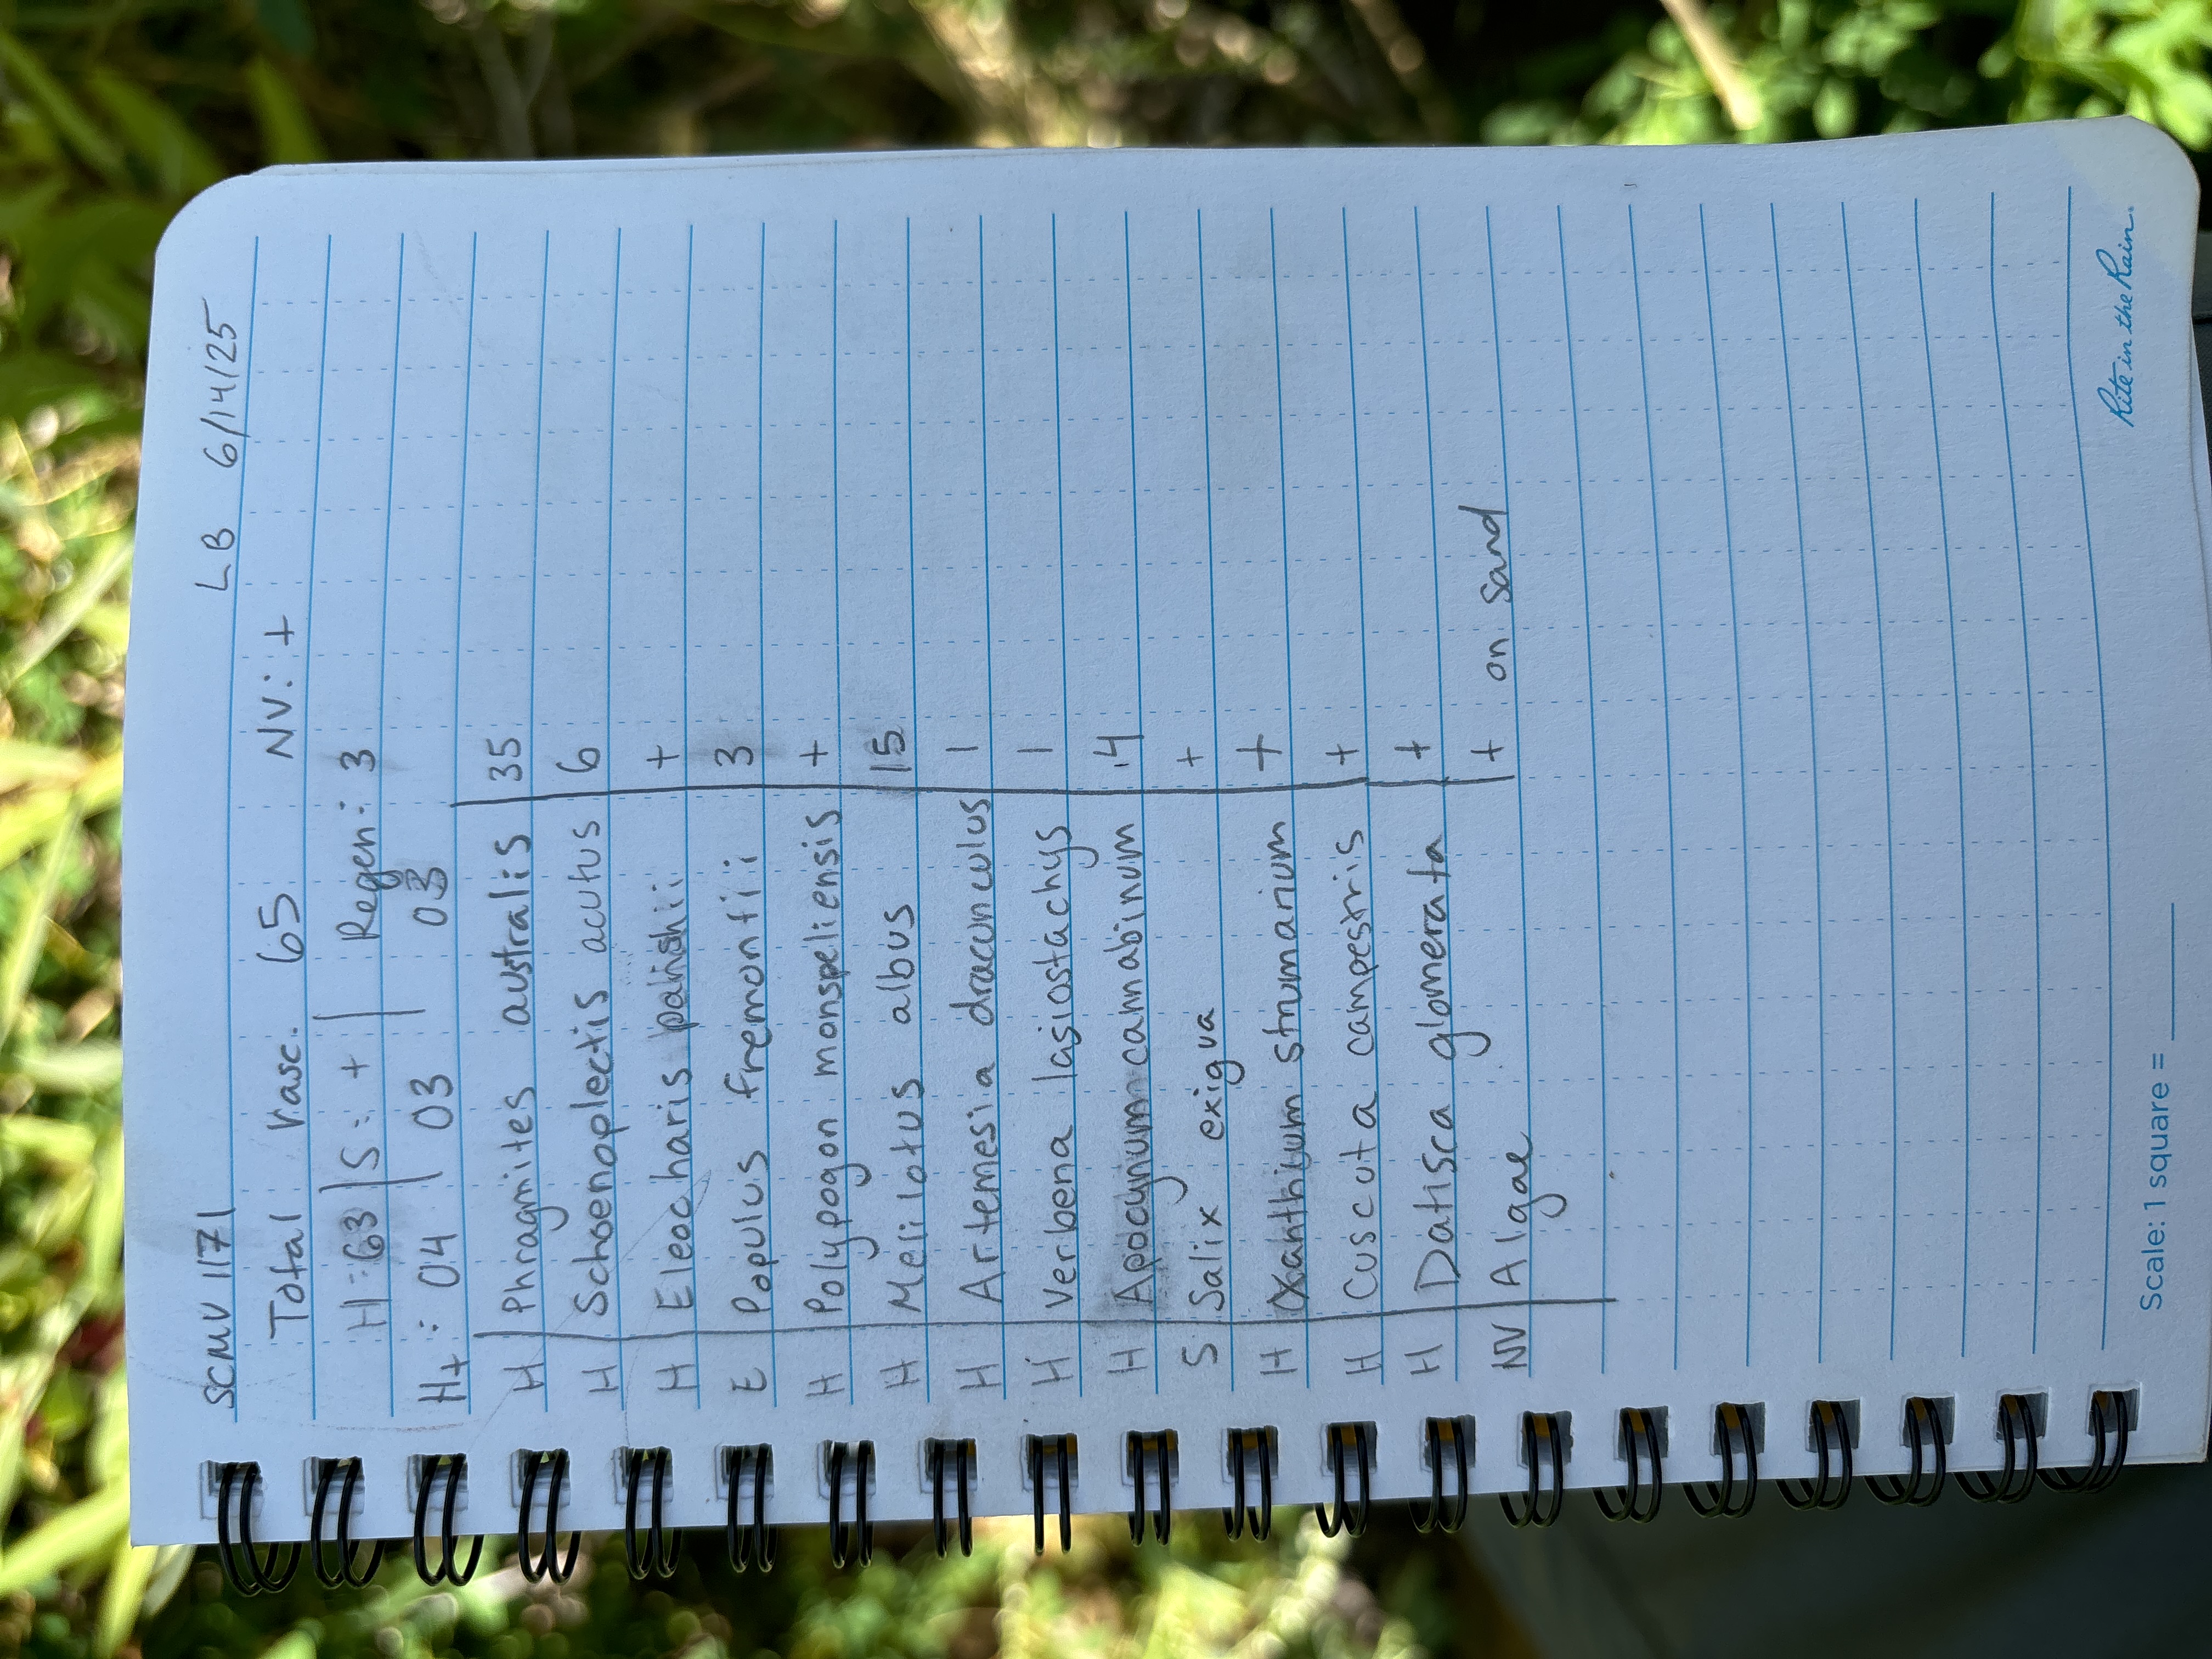 SCMV 1171 LB 6/14/25
Total Vasc. 65 NV: +
H: 63 | S: + | Regen: 3
Ht: 04 | 03 03
H Phragmites australis 35
H Schoenoplectis acutus 6
H Eleocharis parishii +
E Populus fremontii 3
H Polypogon monspeliensis +
H Melilotus albus 15
H Artemesia dracunculus 1
H Verbena lasiostachys 1
H Apocynum cannabinum .4
S Salix exigua +
H Xanthium strumarium +
H Cuscuta campestris +
H Datisca glomerata +
NV Algae + on sand
Scale: 1 square = ______
Rite in the Rain.